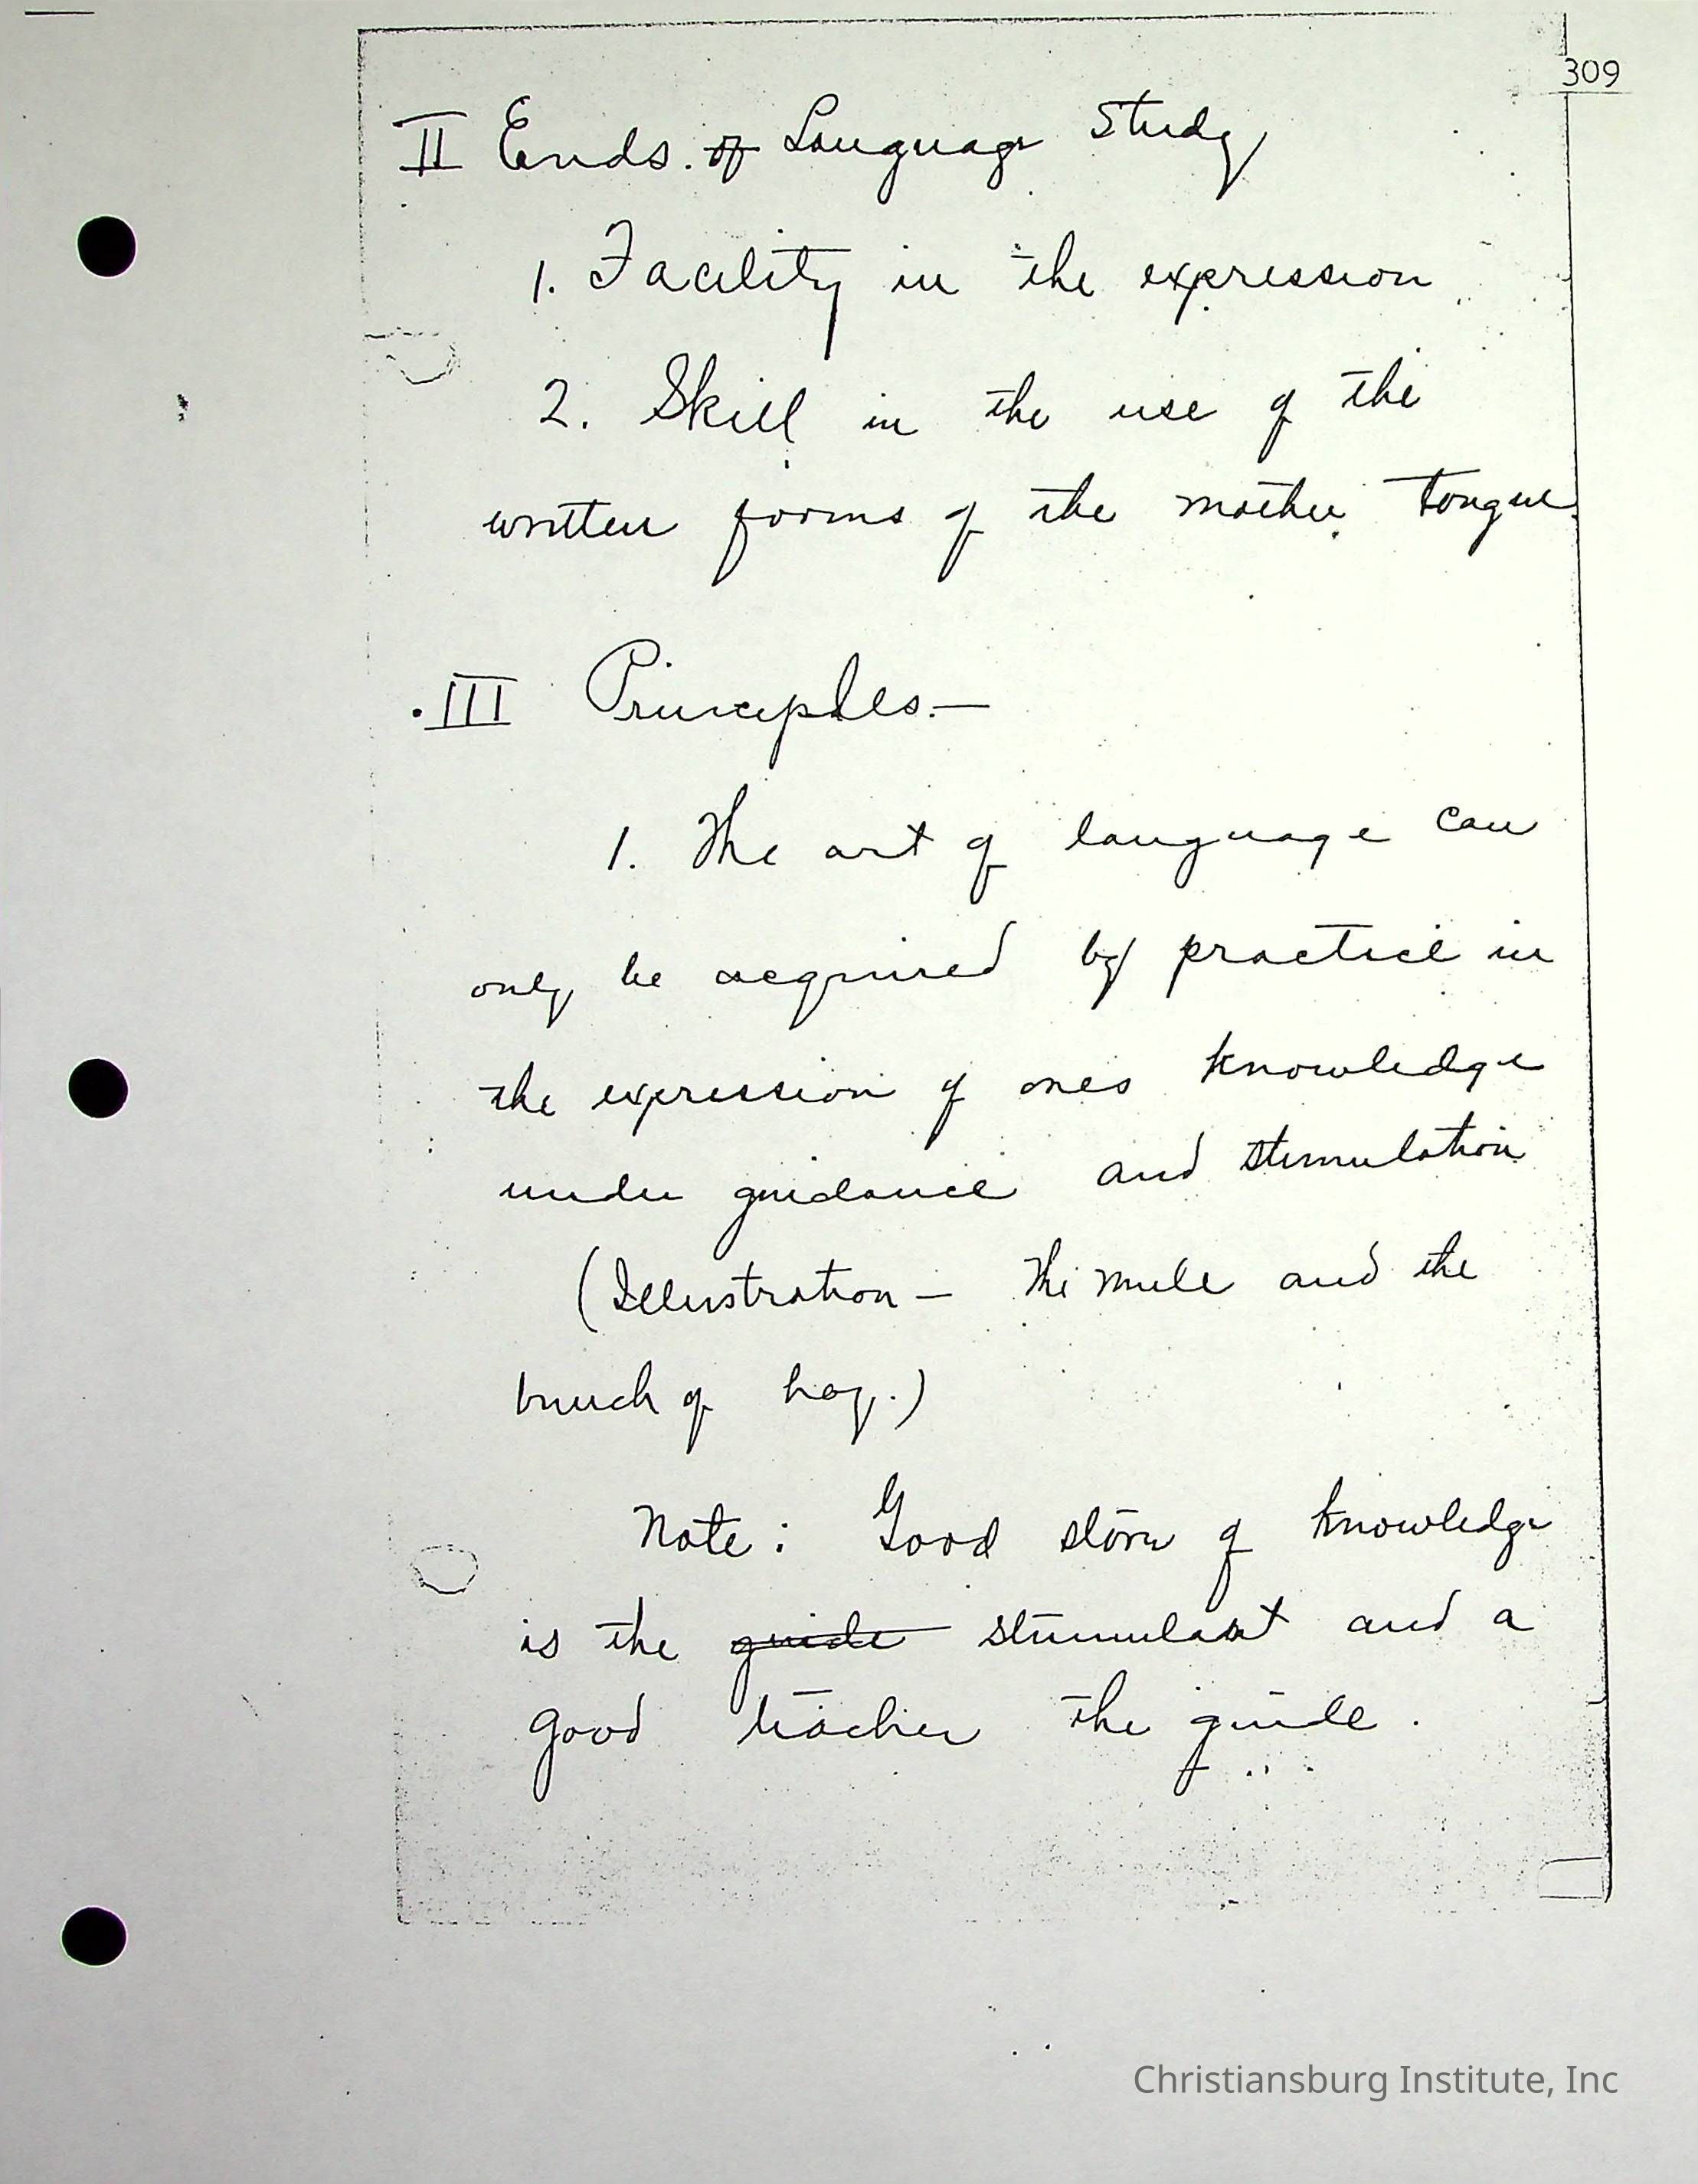 309
II Ends of Language Study
1. Facility in the expression
2. Skill in the use of the
written forms of the mother tongue.
III Principles.—
1. The art of language can
only be acquired by practice in
the expression of ones knowledge
under guidance and stimulation
(Illustration — The mule and the
bunch of hay.)
Note: Good store of knowledge
is the guide stimulant and a
good teacher the guide.
Christiansburg Institute, Inc